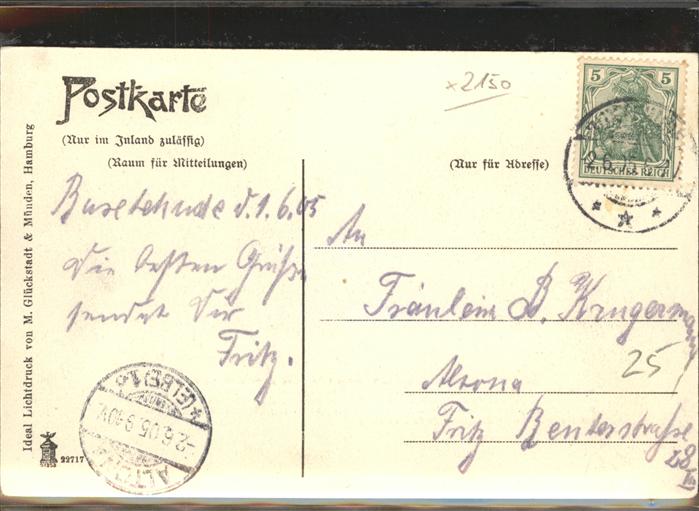 Postkarte
(Nur im Inland zulässig)
(Raum für Mitteilungen)
(Nur für Adresse)
x2150
5 5
DEUTSCHES REICH
2.6.05
Buxtehude d. 1.6.05
Die besten Grüße
sendet Dir
Fritz.
An
Fräulein B. Krugermann
25
Altona
Fritz Reuterstraße
Ideal Lichtdruck von M. Glückstadt & Münden, Hamburg
22717
ALTONA
-2.6.05.9-10V.
*(ELBE)1*